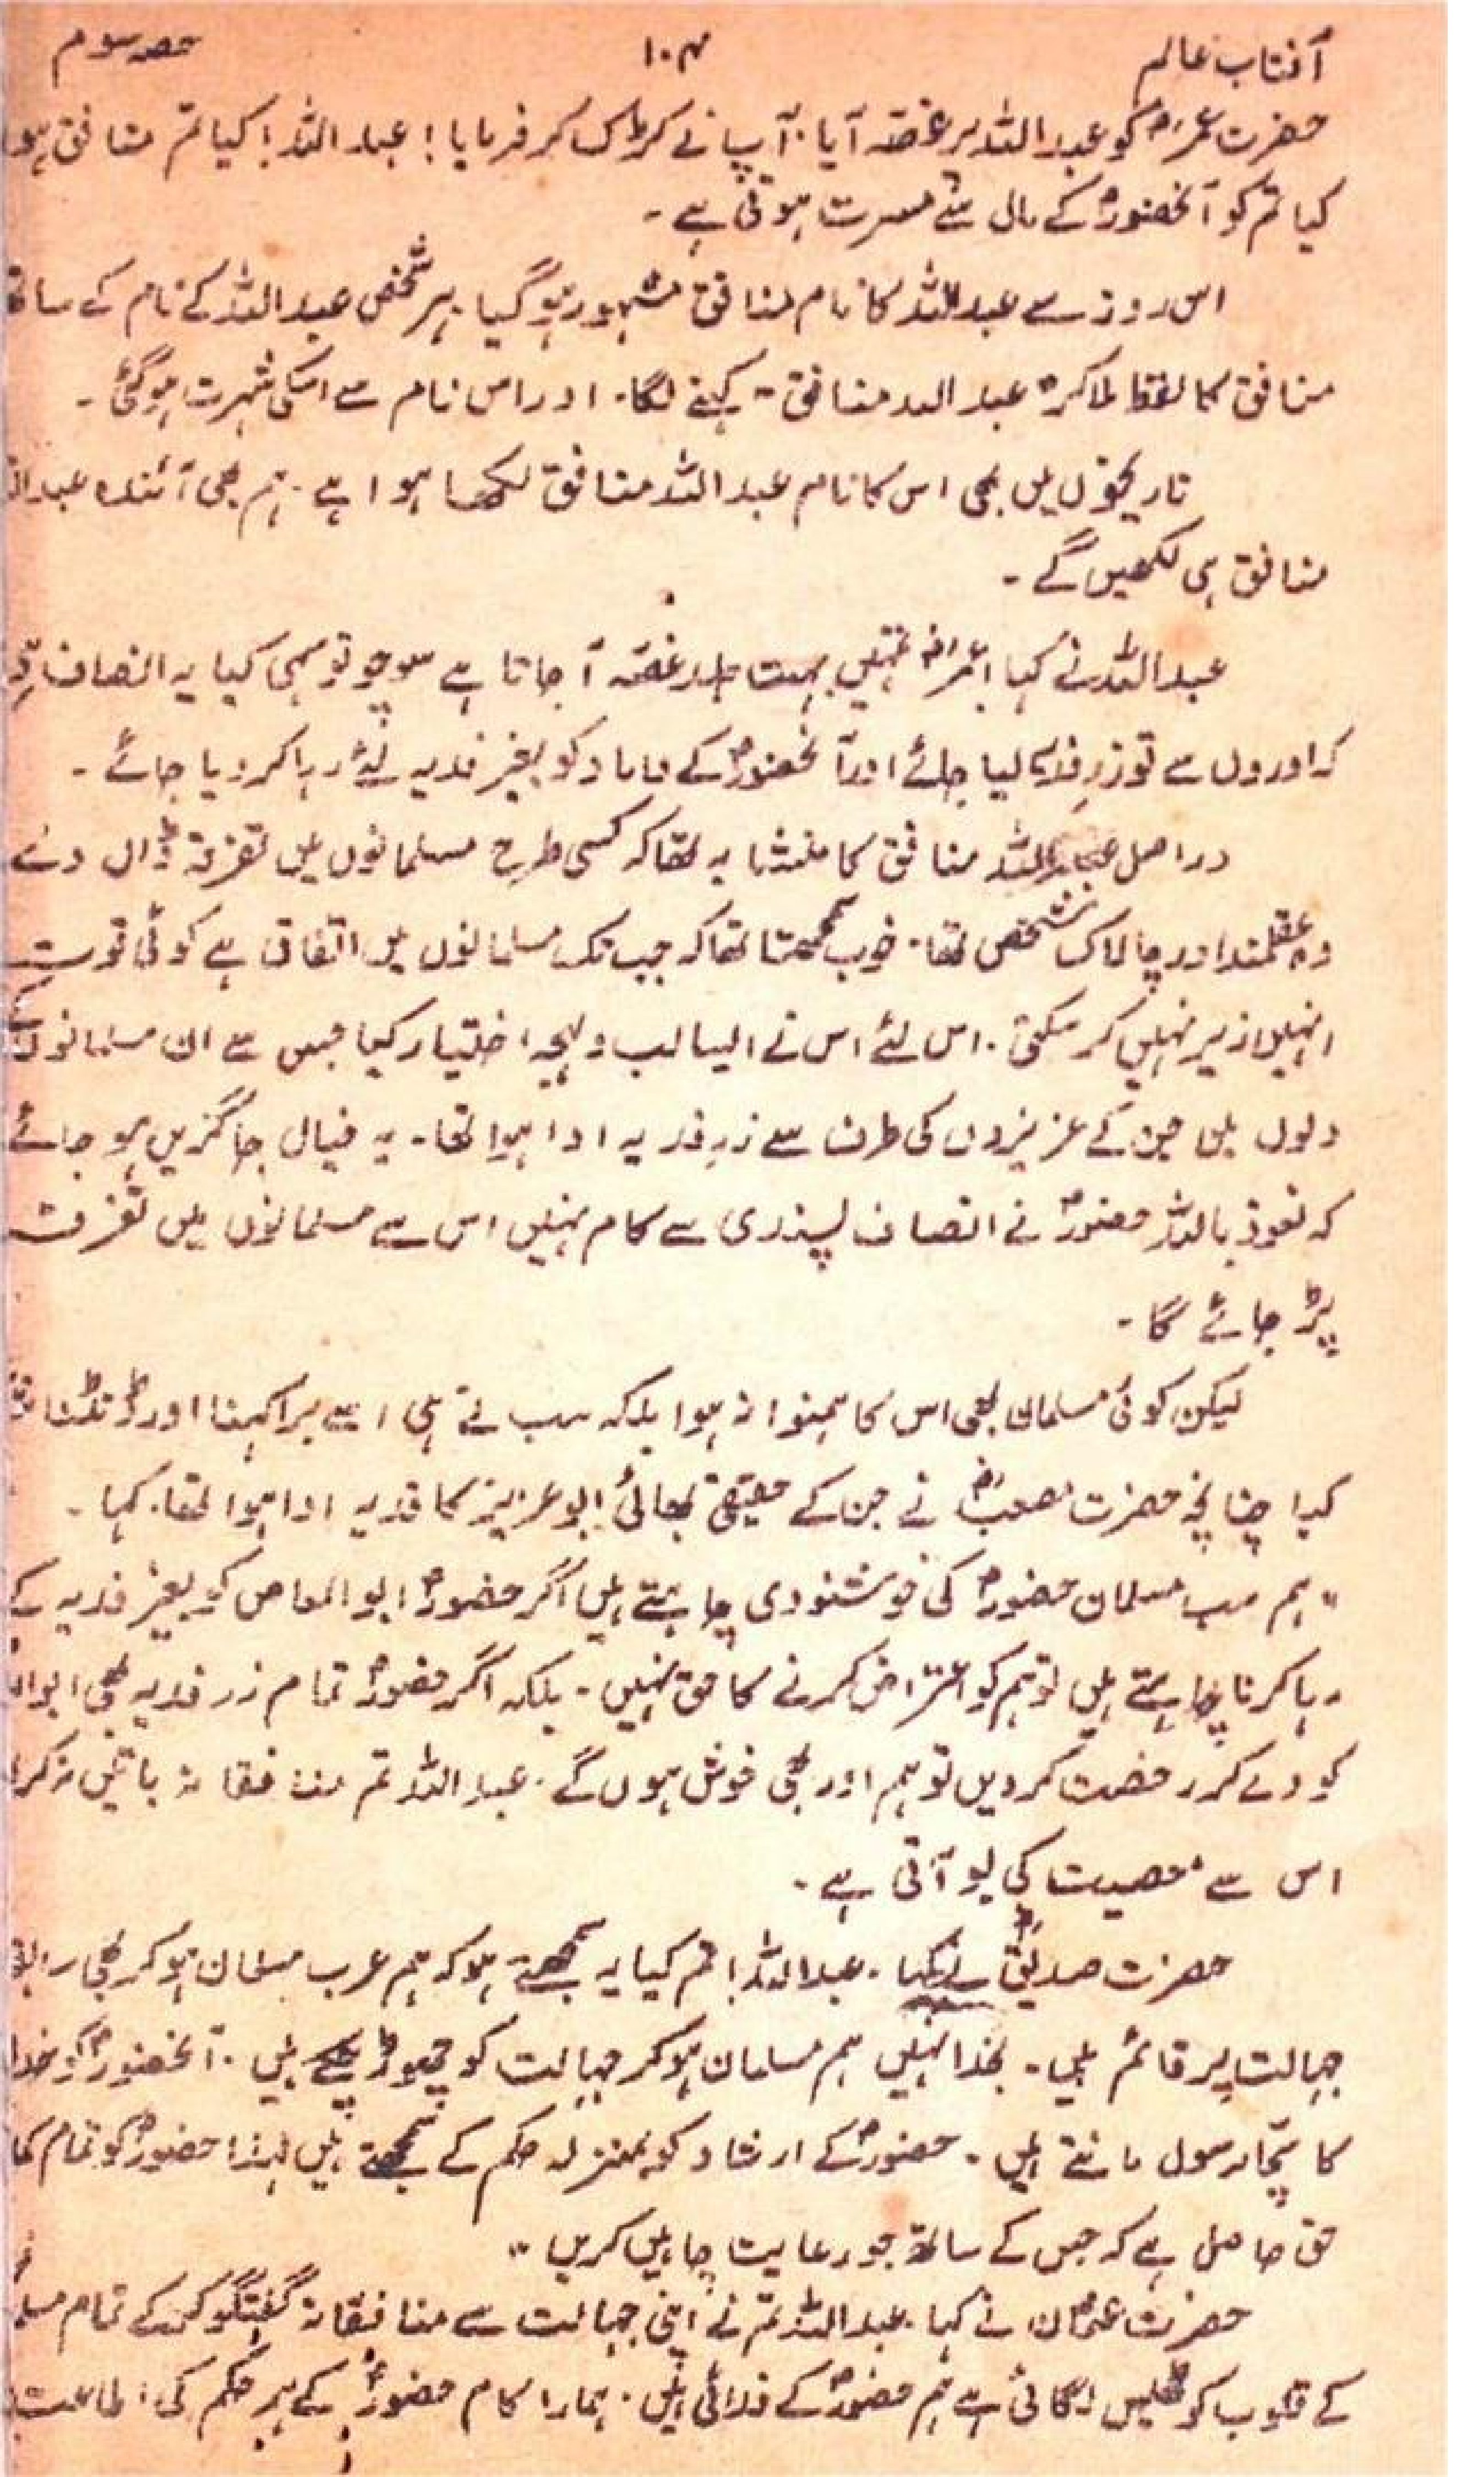 آفتاب عالم ۱۰۴ حصہ سوم
حضرت عمرؓ کو عبداللہ پر غصہ آیا۔ آپ نے کڑک کر فرمایا! عبداللہ! کیا تم منافق ہو
کیا تم کو آنحضورؐ کے مال سے مسرت ہوتی ہے۔
اس روز سے عبداللہ کا نام منافق مشہور ہو گیا۔ ہر شخص عبداللہ کے نام کے ساتھ
منافق کا لفظ ملا کر " عبداللہ منافق " کہنے لگا۔ اور اس نام سے اسکی شہرت ہو گئی۔
تاریخوں میں بھی اس کا نام عبداللہ منافق لکھا ہوا ہے۔ ہم بھی آئندہ
منافق ہی لکھیں گے۔
عبداللہ نے کہا اعمرؓ تمہیں بہت جلد غصہ آ جاتا ہے سوچو تو سہی کیا یہ انصاف
کہ اوروں سے تو زرِ فدیہ لیا جائے اور آنحضورؐ کے داماد کو بغیر فدیہ لئے رہا کر دیا جائے۔
دراصل عبداللہ منافق کا منشا یہ تھا کہ کسی طرح مسلمانوں میں تفرقہ ڈال دے
وہ عقلمند اور چالاک شخص تھا۔ خوب سمجھتا تھا کہ جب تک مسلمانوں میں اتفاق ہے کوئی قوت
انہیں زیر نہیں کر سکتی۔ اس لئے اس نے ایسا لب و لہجہ اختیار کیا جس سے ان مسلمانوں کے
دلوں میں جن کے عزیزوں کی طرف سے زرِ فدیہ ادا ہوا تھا۔ یہ خیال جاگزیں ہو جائے
کہ نعوذ باللہ حضورؐ نے انصاف پسندی سے کام نہیں اس سے مسلمانوں میں تفرقہ
پڑ جائے گا۔
لیکن کوئی مسلمان بھی اس کا ہمنوا نہ ہوا بلکہ سب نے ہی اسے برا کہنا اور ڈانٹنا
کیا چنانچہ حضرت مصعبؓ نے جن کے حقیقی بھائی ابو عزیز کا فدیہ ادا ہوا تھا۔ کہا۔
" ہم سب مسلمان حضورؐ کی خوشنودی چاہتے ہیں اگر حضورؐ ابوالعاص کو بغیر فدیہ کے
رہا کرنا چاہتے ہیں تو ہم کو اعتراض کرنے کا حق نہیں۔ بلکہ اگر حضورؐ تمام زر فدیہ بھی
کو دے کر رخصت کر دیں تو ہم اور بھی خوش ہوں گے۔ عبداللہ تم منافقانہ باتیں نہ کرو
اس سے معصیت کی بو آتی ہے۔
حضرت صدیقؓ نے کہا۔ عبداللہ! تم کیا یہ سمجھتے ہو کہ ہم عرب مسلمان ہو کر بھی
جہالت پر قائم ہیں۔ بخدا نہیں ہم مسلمان ہو کر جہالت کو چھوڑ چکے ہیں۔ آنحضورؐ کو خدا
کا سچا رسول مانتے ہیں۔ حضورؐ کے ارشاد کو بمنزلہ حکم کے سمجھتے ہیں لہٰذا حضورؐ کو تمام کا
حق حاصل ہے کہ جس کے ساتھ جو رعایت چاہیں کریں "
حضرت عثمانؓ نے کہا۔ عبداللہ تم نے اپنی جہالت سے منافقانہ گفتگو کر کے تمام
کے قلوب کو ٹھیس لگائی ہے ہم حضورؐ کے فدائی ہیں۔ ہمارا کام حضورؐ کے ہر حکم کی اطاعت